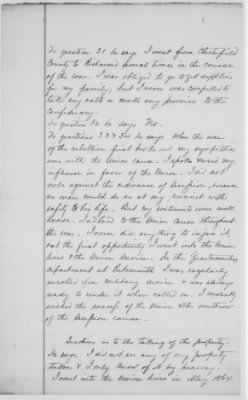 To question 31 he says I went from Chesterfield
County to Richmond several times in the course
of the war. I was obliged to go to get supplies
for my family, but I never was compelled to
take any oath or make any promise to the
Confederacy.
To question 36 he says No.
To questions 38 & 40 he says When the war
of the rebellion first broke out my sympathies
was with the Union cause. I spoke & used my
influence in favor of the Union. I did not
vote against the ordinance of secession, because
no man could do so at my precinct with
safety to his life. But my sentiments were well
known. I adhered to the Union cause throughout
the war. I never did any thing to injure it,
at the first opportunity I went into the Union
lines & the Union service. In the Quartermasters
department at Portsmouth I was regularly
enrolled for military service & was always
ready to render it when called on. I ardently
wished the success of the Union & the overthrow
of the secession cause.
Questions as to the taking of the property.
He says, I did not see any of my property
taken & I only know of it by hearsay.
I went into the Union lines in May 1864